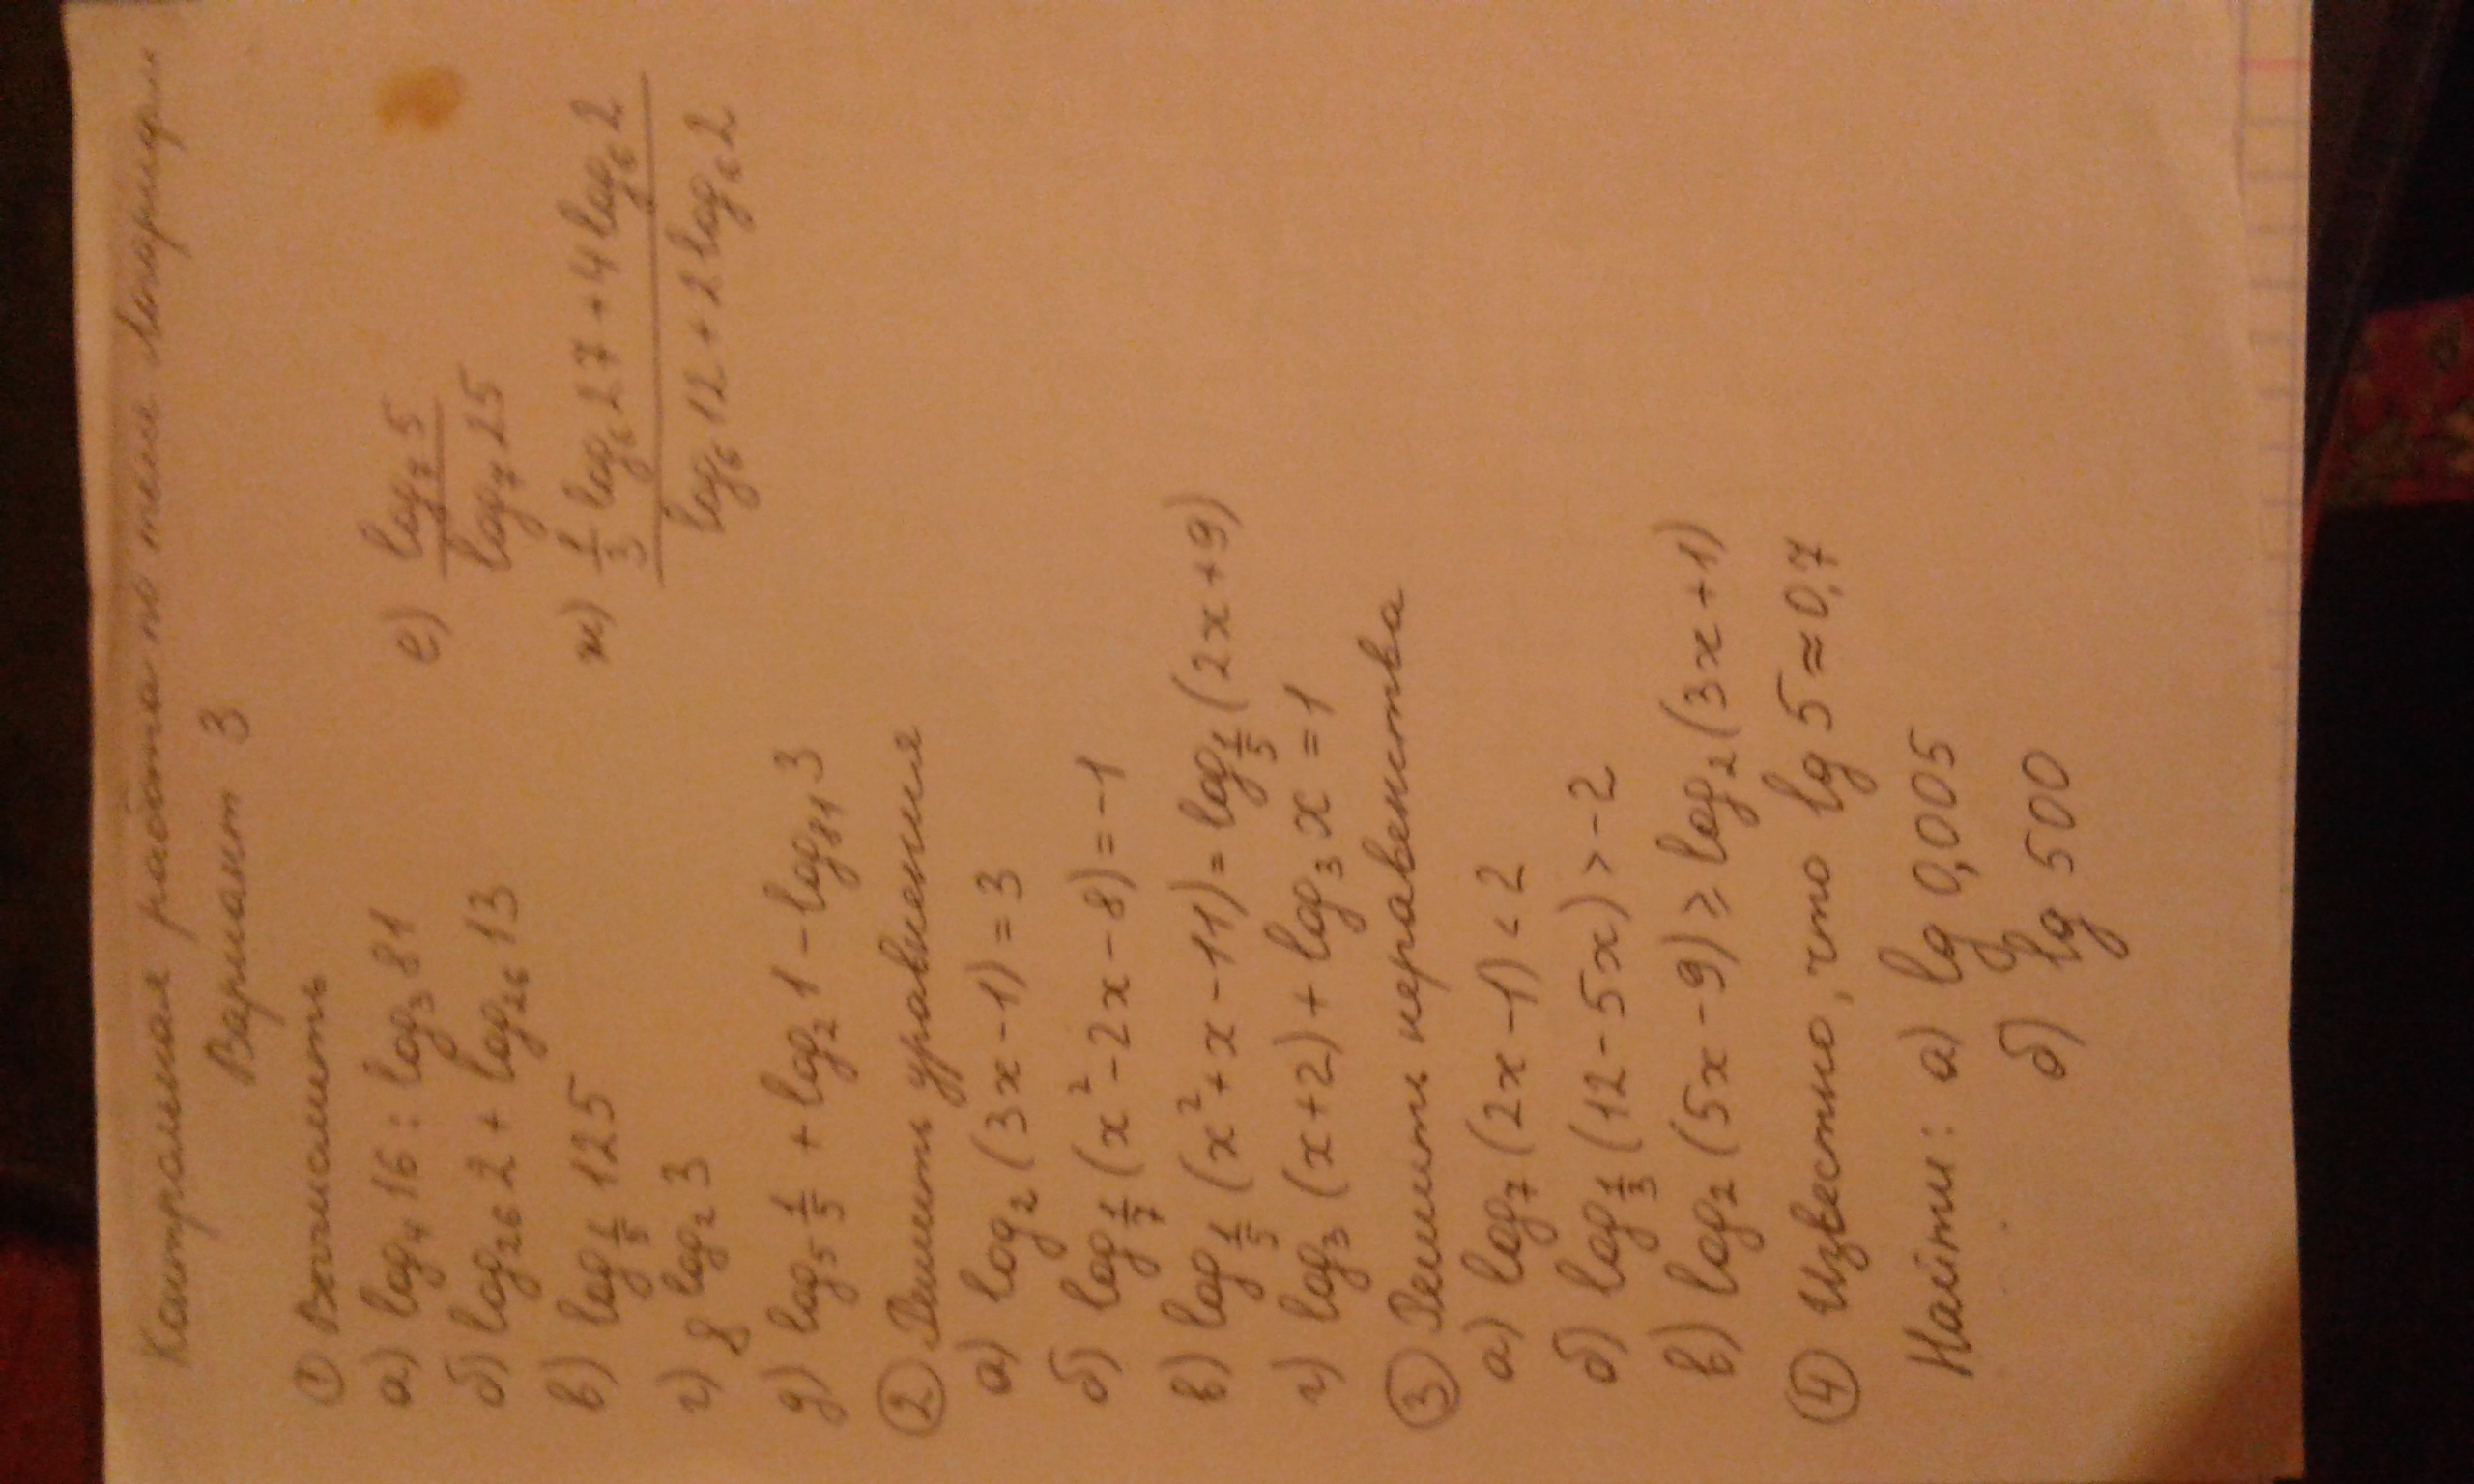 Контрольная работа по теме Логарифм
Вариант 3
① Вычислить
а) log₄ 16 : log₃ 81
б) log₂₆ 2 + log₂₆ 13
в) log_{1/5} 125
г) 8^{log₂ 3}
д) log₅ 1/5 + log₂ 1 - log₈₁ 3
е) (log₇ 5)/(log₇ 25)
ж) (1/3 log₆ 27 + 4 log₆ 2)/(log₆ 12 + 2 log₆ 2)
② Решить уравнения
а) log₂ (3x - 1) = 3
б) log_{1/7} (x² - 2x - 8) = -1
в) log_{1/5} (x² + x - 11) = log_{1/5} (2x + 9)
г) log₃ (x + 2) + log₃ x = 1
③ Решить неравенства
а) log₇ (2x - 1) < 2
б) log_{1/3} (12 - 5x) > -2
в) log₂ (5x - 9) ≥ log₂ (3x + 1)
④ Известно, что lg 5 ≈ 0,7
Найти: а) lg 0,005
б) lg 500